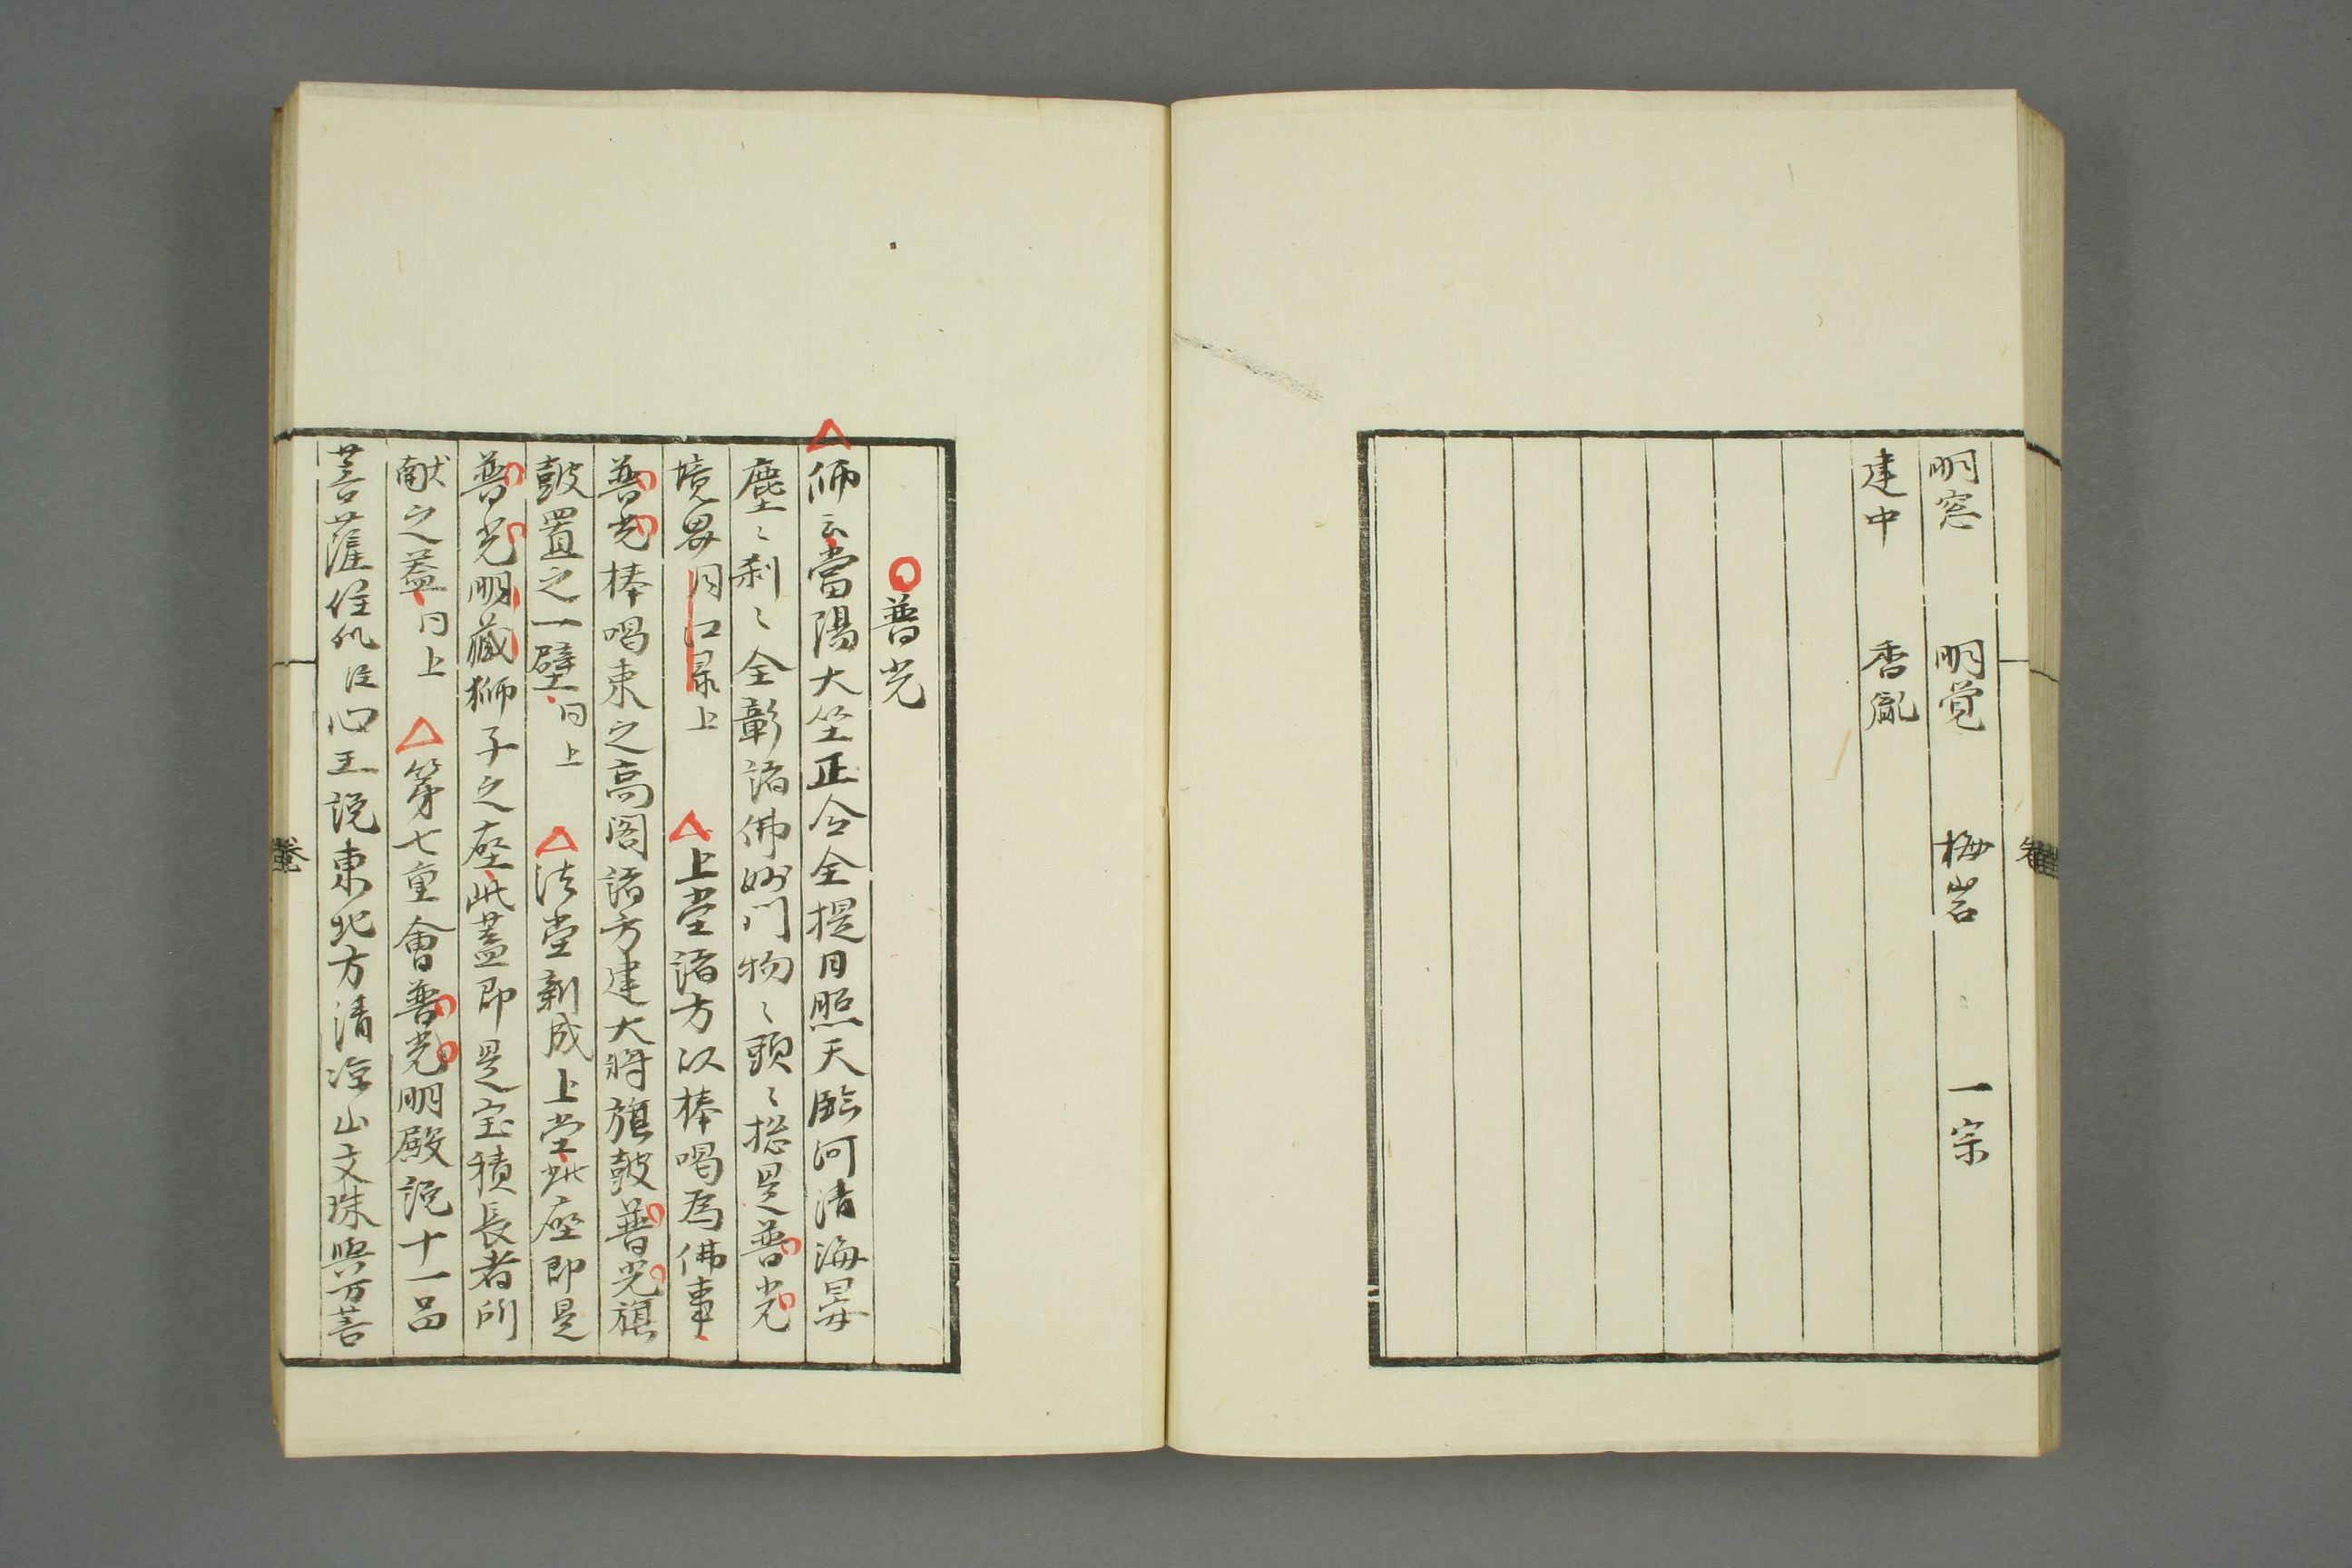 明窓 明覚 梅岩 一宗
建中 香胤
普光
師云當陽大坐正令全提日照天臨河清海晏
塵〻刹〻全彰諸佛妙門物〻頭〻捴是普光
境界月江录上 上堂諸方以棒喝為佛事
普光棒喝束之高閣諸方建大将旗皷普光旗
皷置之一壁同上 法堂新成上堂此座即是
普光明藏獅子之座此蓋即是宝積長者所
献之蓋同上 第七重會普光明殿說十一品
菩薩住処 心王說東北方清涼山文殊與万菩